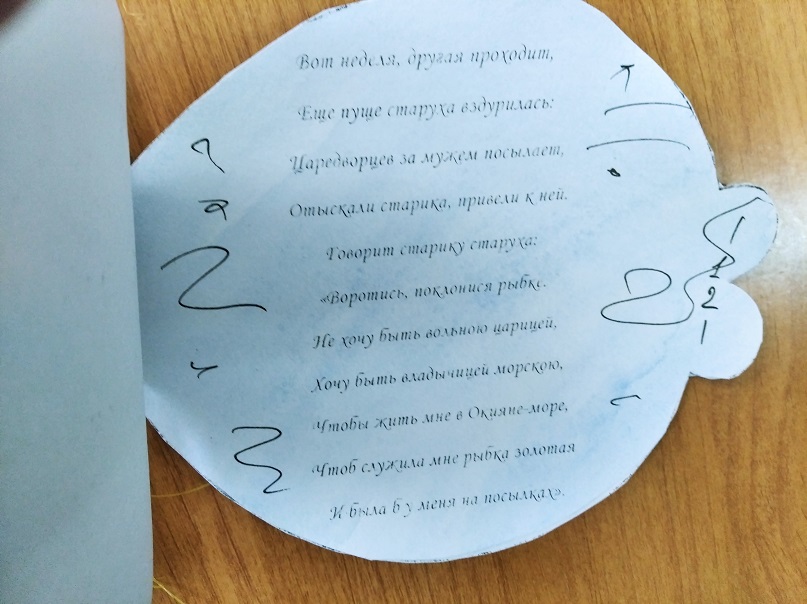 Вот неделя, другая проходит,
Еще пуще старуха вздурилась:
Царедворцев за мужем посылает,
Отыскали старика, привели к ней.
Говорит старику старуха:
«Воротись, поклонися рыбке.
Не хочу быть вольною царицей,
Хочу быть владычицей морскою,
Чтобы жить мне в Окияне-море,
Чтоб служила мне рыбка золотая
И была б у меня на посылках».